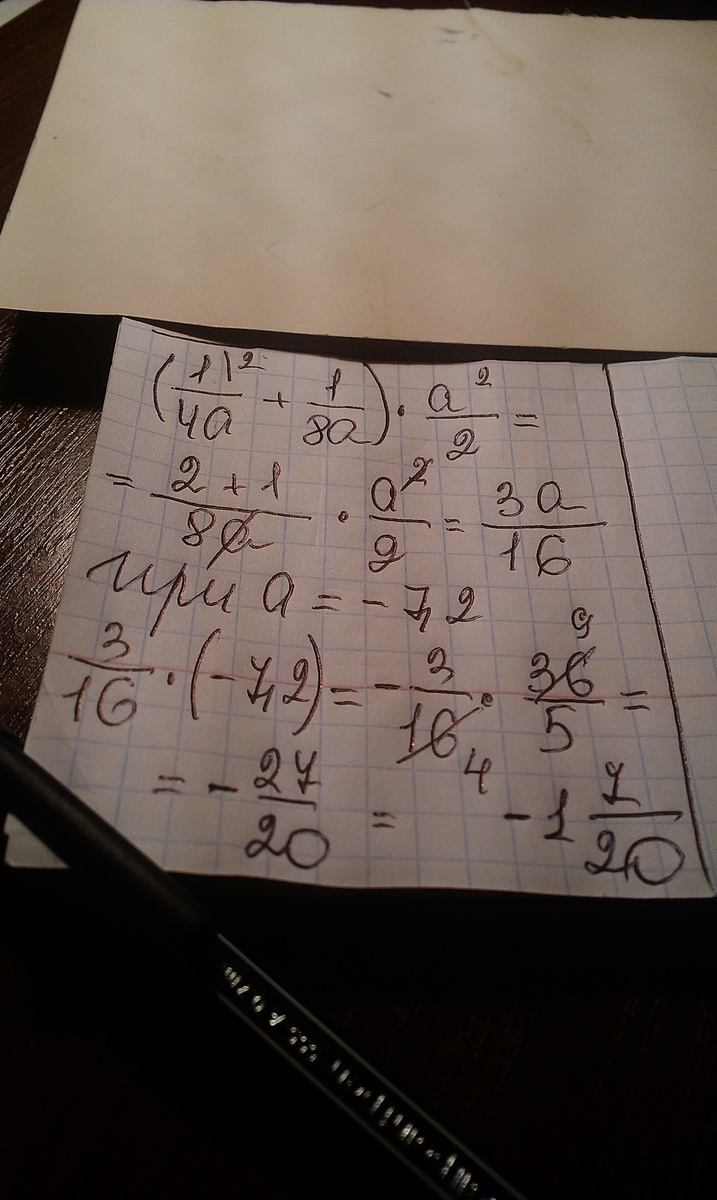 (1/4a |² + 1/8a) · a²/2 =
= 2+1/8a · a²/2 = 3a/16
при a = -7,2
3/16 · (-7,2) = - 3/16 4 · 36 9/5 =
= - 27/20 = -1 7/20